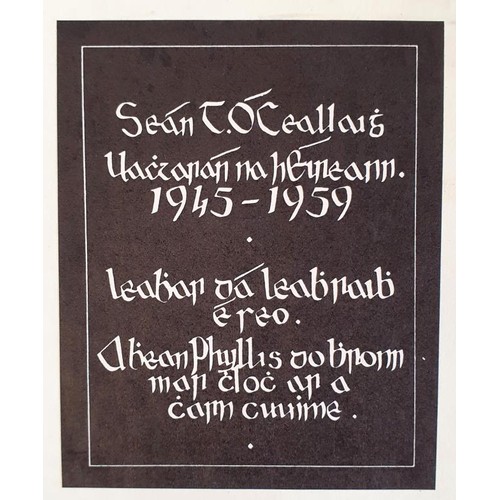 Seán T. Ó Ceallaiġ
Uaċtarán na hÉireann.
1945-1959
.
Leaḃar dá leaḃraiḃ
é seo.
A ḃean Phyllis do ḃronn
mar ċloċ ar a
ċarn cuiṁne.
.